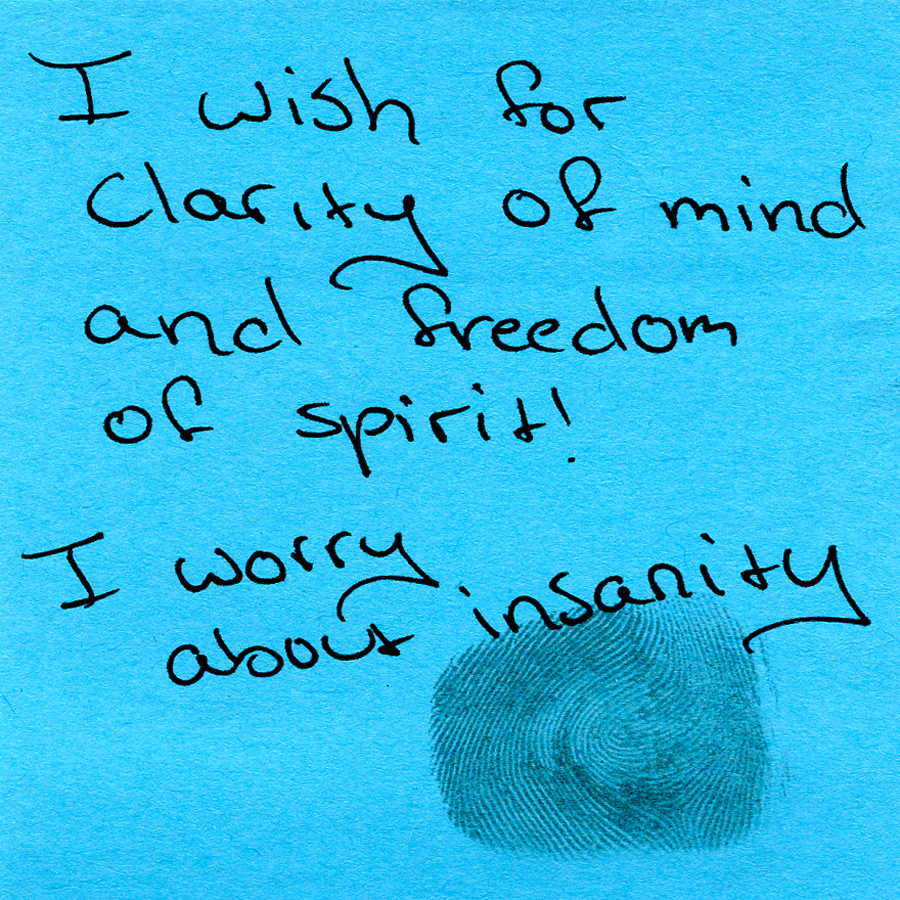 I wish for
Clarity of mind
and freedom
of spirit!
I worry
about insanity